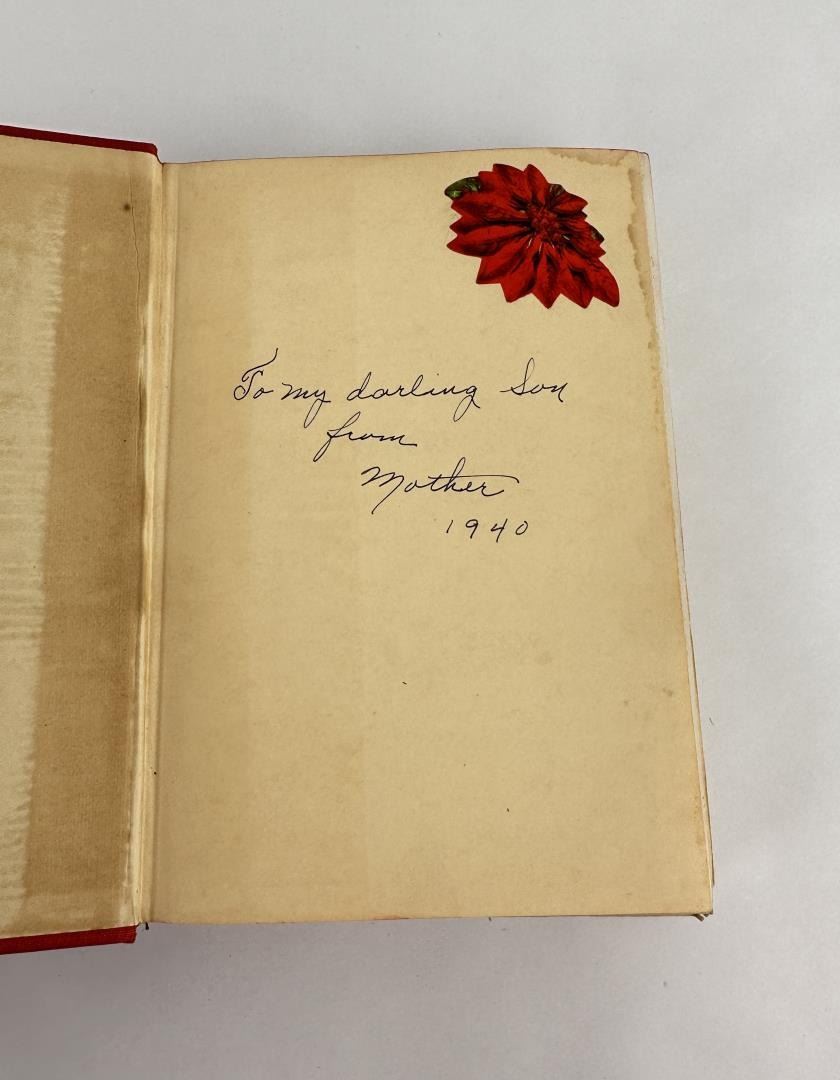 To my darling Son
from
Mother
1940